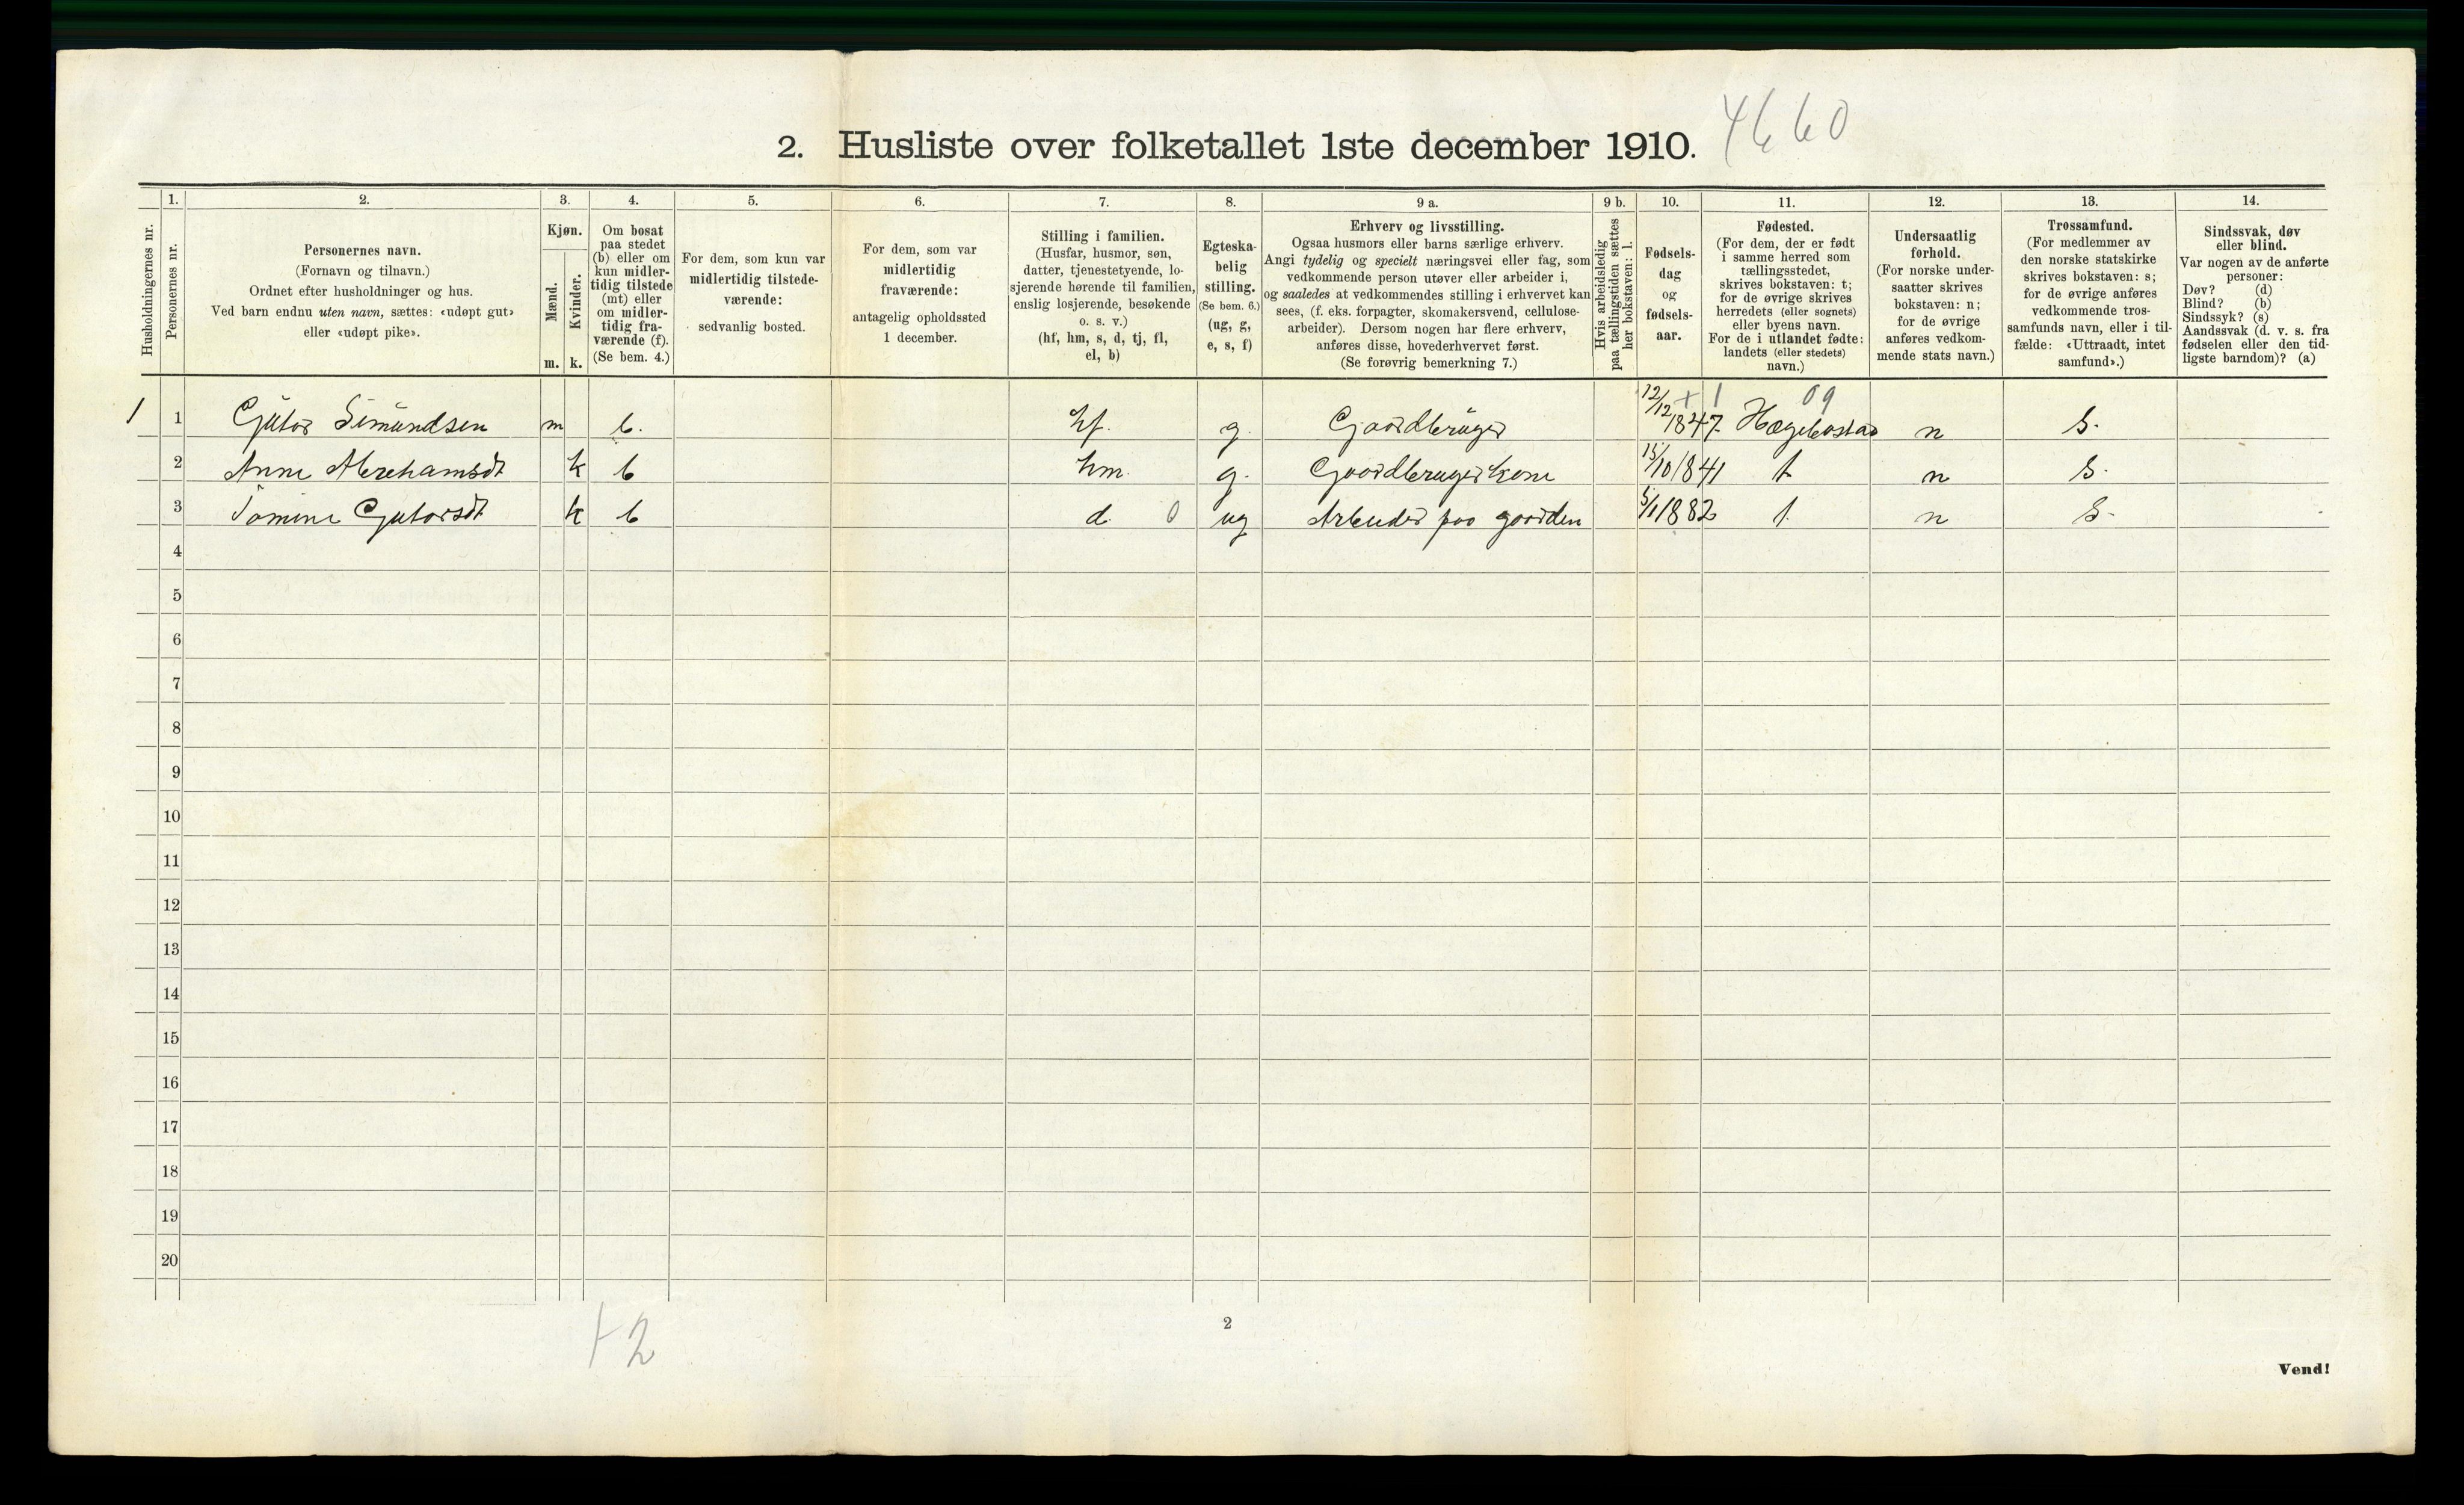 2. Husliste over folketallet 1ste december 1910. 4660
Husholdningernes nr.
1. Personernes nr.
2. Personernes navn.
(Fornavn og tilnavn.)
Ordnet efter husholdninger og hus.
Ved barn endnu uten navn, sættes: «udøpt gut»
eller «udøpt pike».
3. Kjøn.
Mænd. m.
Kvinder. k.
4. Om bosat
paa stedet
(b) eller om
kun midler-
tidig tilstede
(mt) eller
om midler-
tidig fra-
værende (f).
(Se bem. 4.)
5. For dem, som kun var
midlertidig tilstede-
værende:
sedvanlig bosted.
6. For dem, som var
midlertidig
fraværende:
antagelig opholdssted
1 december.
7. Stilling i familien.
(Husfar, husmor, søn,
datter, tjenestetyende, lo-
sjerende hørende til familien,
enslig losjerende, besøkende
o. s. v.)
(hf, hm, s, d, tj, fl,
el, b)
8. Egteska-
belig
stilling.
(Se bem. 6.)
(ug, g,
e, s, f)
9 a. Erhverv og livsstilling.
Ogsaa husmors eller barns særlige erhverv.
Angi tydelig og specielt næringsvei eller fag, som
vedkommende person utøver eller arbeider i,
og saaledes at vedkommendes stilling i erhvervet kan
sees, (f. eks. forpagter, skomakersvend, cellulose-
arbeider). Dersom nogen har flere erhverv,
anføres disse, hovederhvervet først.
(Se forøvrig bemerkning 7.)
9 b. Hvis arbeidsledig
paa tællingstiden sættes
her bokstaven: l.
10. Fødsels-
dag
og
fødsels-
aar.
11. Fødested.
(For dem, der er født
i samme herred som
tællingsstedet,
skrives bokstaven: t;
for de øvrige skrives
herredets (eller sognets)
eller byens navn.
For de i utlandet fødte:
landets (eller stedets)
navn.)
12. Undersaatlig
forhold.
(For norske under-
saatter skrives
bokstaven: n;
for de øvrige
anføres vedkom-
mende stats navn.)
13. Trossamfund.
(For medlemmer av
den norske statskirke
skrives bokstaven: s;
for de øvrige anføres
vedkommende tros-
samfunds navn, eller i til-
fælde: «Uttraadt, intet
samfund».)
14. Sindssvak, døv
eller blind.
Var nogen av de anførte
personer:
Døv? (d)
Blind? (b)
Sindssyk? (s)
Aandssvak (d. v. s. fra
fødselen eller den tid-
ligste barndom)? (a)
+ 1 09
1 1 Gutor Simundsen m b. hf. g. Gaardbruger 12/12 1847 Hægebostad n S.
2 Anne Abrehamsdt k b hm. g. Gaardbrugerkone 15/10 1841 t n S.
3 Tomine Gutorsdt k b d. 0 ug Arbeider paa gaarden 5/1 1882 t. n S.
4
5
6
7
8
9
10
11
12
13
14
15
16
17
18
19
20
2
+2
Vend!